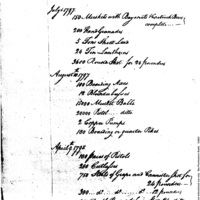 July 1797
150 Muskets with Bayonets
complete
200 Hand Granades
5 Tons Sheet Lead
24 Tin Lanthorns
3600 Round Shot for 24 pounders
August 1797
100 Boarding Axes
12 Blunderbusses
10000 Musket Balls
20000 Pistol ditto
2 Copper Pumps
150 Boarding or quarter Pikes
April 1798
100 pairs of Pistols
200 Cutlasses
Stools of Grape and Cannister Shot for
24 pounders
300 do do do 12 pounders